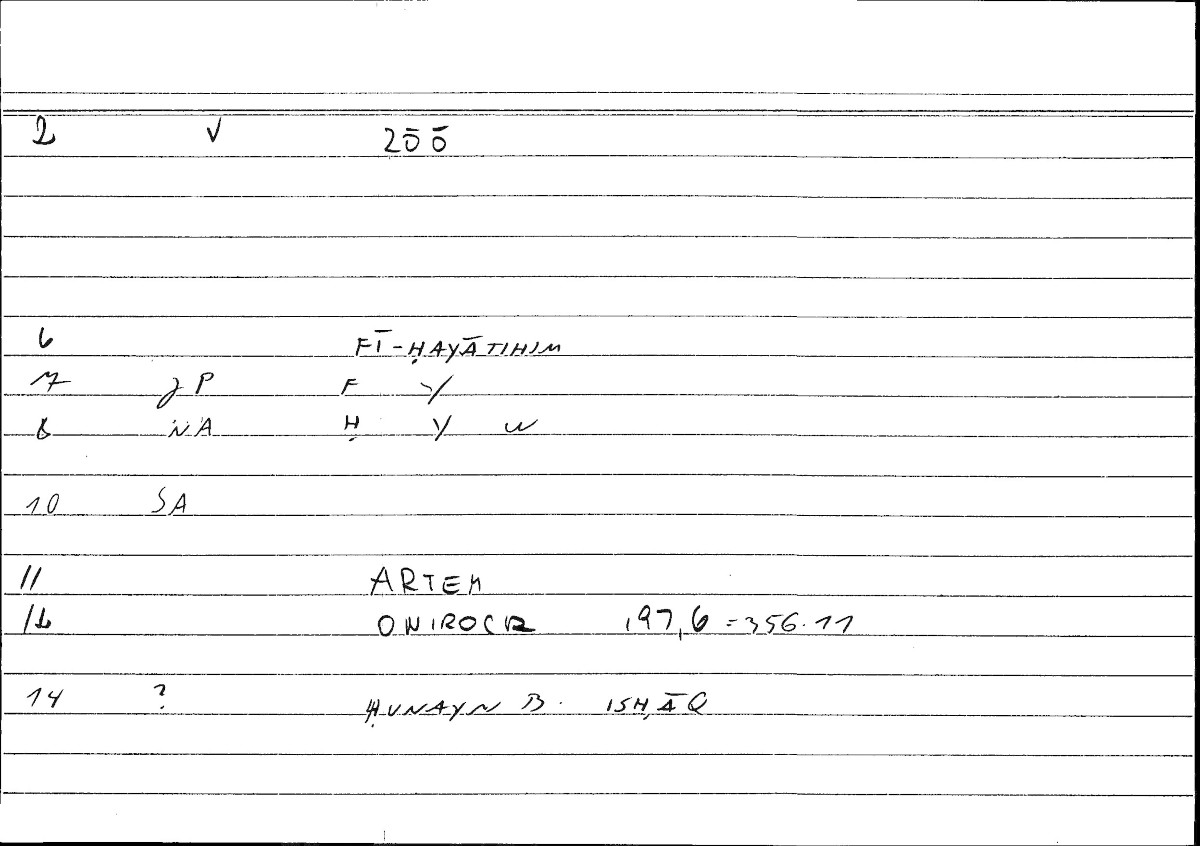 2 V ζōō
6 FĪ-ḤAYĀTIHIM
7 JP F Y
8 NA Ḥ Y W
10 SA
11 ARTEM
12 ONIROCR 197,6 = 356.11
14 ? ḤUNAYN B. ISḤĀQ